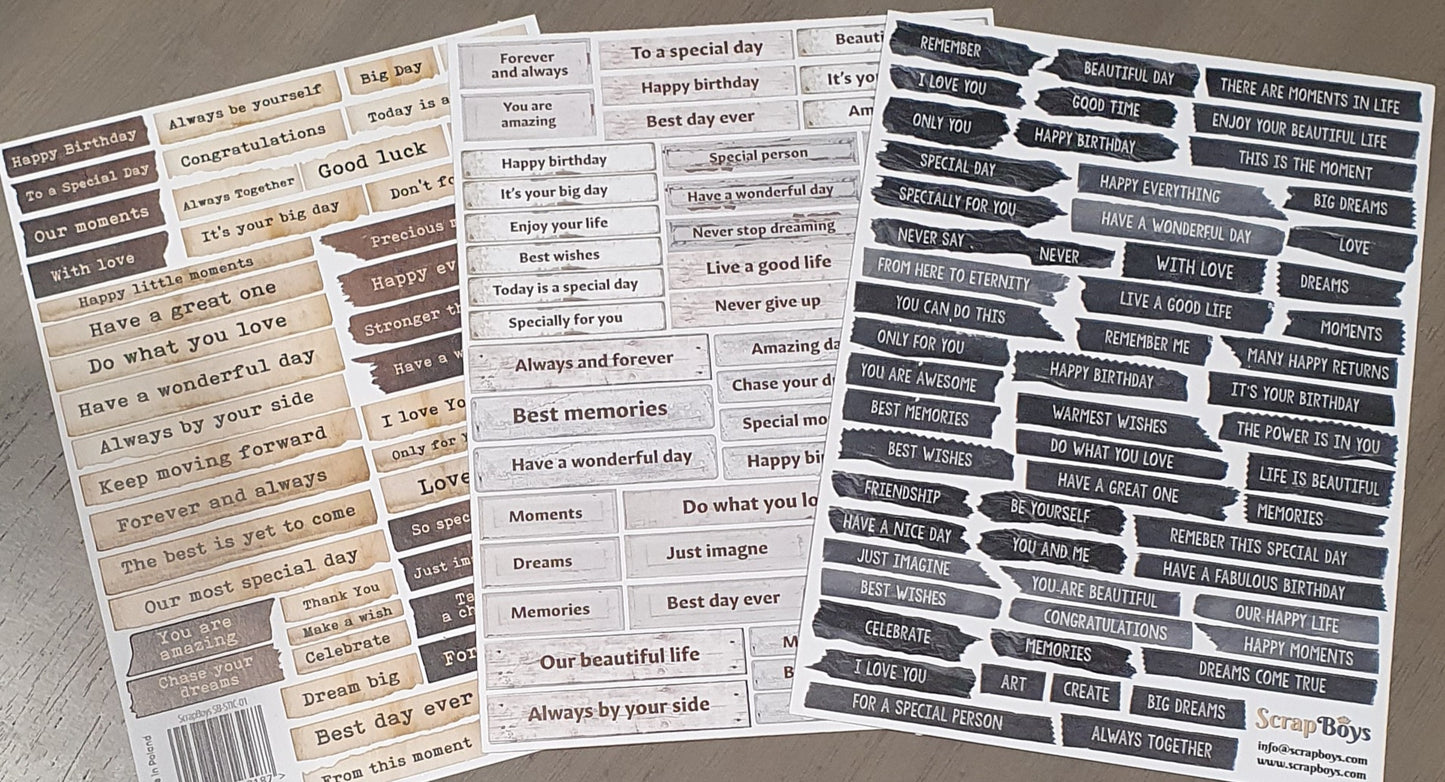 Happy Birthday
To a Special Day
Our moments
With love
Always be yourself
Big Day
Congratulations
Today is a
Always Together
Good luck
It's your big day
Don't
Happy little moments
Precious
Have a great one
Happy
Do what you love
Stronger
Have a wonderful day
Have a
Always by your side
I love
Keep moving forward
Only for
Forever and always
Love
The best is yet to come
So
Our most special day
Just
You are
amazing
Thank You
a
Make a wish
Chase your
dreams
Celebrate
For
Dream big
Best day ever
From this moment
ScrapBoys SB-STIC-01
in Poland
Forever
and always
You are
amazing
To a special day
Happy birthday
It's
Best day ever
Happy birthday
It's your big day
Enjoy your life
Best wishes
Today is a special day
Specially for you
Special person
Have a wonderful day
Never stop dreaming
Live a good life
Never give up
Always and forever
Amazing
Best memories
Chase your
Special
Have a wonderful day
Happy
Moments
Do what you
Dreams
Just imagne
Memories
Best day ever
Our beautiful life
M
Always by your side
B
REMEMBER
BEAUTIFUL DAY
THERE ARE MOMENTS IN LIFE
I LOVE YOU
GOOD TIME
ENJOY YOUR BEAUTIFUL LIFE
ONLY YOU
HAPPY BIRTHDAY
THIS IS THE MOMENT
SPECIAL DAY
HAPPY EVERYTHING
BIG DREAMS
SPECIALLY FOR YOU
HAVE A WONDERFUL DAY
LOVE
NEVER SAY
NEVER
WITH LOVE
DREAMS
FROM HERE TO ETERNITY
LIVE A GOOD LIFE
MOMENTS
YOU CAN DO THIS
REMEMBER ME
MANY HAPPY RETURNS
ONLY FOR YOU
HAPPY BIRTHDAY
IT'S YOUR BIRTHDAY
YOU ARE AWESOME
WARMEST WISHES
THE POWER IS IN YOU
BEST MEMORIES
DO WHAT YOU LOVE
LIFE IS BEAUTIFUL
BEST WISHES
HAVE A GREAT ONE
MEMORIES
FRIENDSHIP
BE YOURSELF
REMEBER THIS SPECIAL DAY
HAVE A NICE DAY
YOU AND ME
HAVE A FABULOUS BIRTHDAY
JUST IMAGINE
YOU ARE BEAUTIFUL
OUR HAPPY LIFE
BEST WISHES
CONGRATULATIONS
HAPPY MOMENTS
CELEBRATE
MEMORIES
DREAMS COME TRUE
I LOVE YOU
ART
CREATE
BIG DREAMS
FOR A SPECIAL PERSON
ALWAYS TOGETHER
ScrapBoys
info@scrapboys.com
www.scrapboys.com